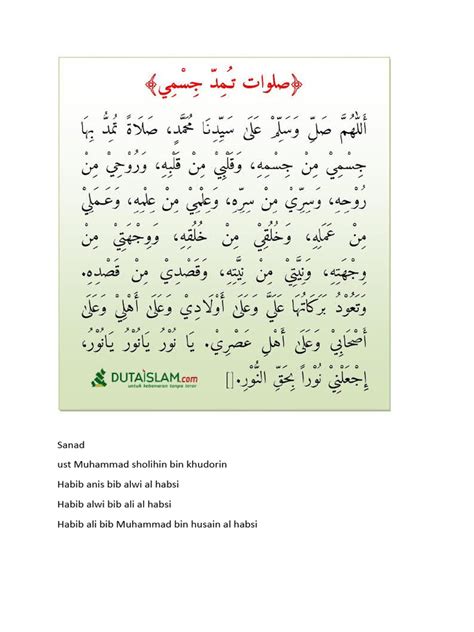 ﴿صلوات تُمِدّ جِسْمِي﴾
أَللّٰهُمَّ صَلِّ وَسَلِّمْ عَلَى سَيِّدِنَا مُحَمَّدٍ، صَلَاةً تُمِدُّ بِهَا
جِسْمِيْ مِنْ جِسْمِهِ، وَقَلْبِيْ مِنْ قَلْبِهِ، وَرُوْحِيْ مِنْ
رُوْحِهِ، وَسِرِّيْ مِنْ سِرِّهِ، وَعِلْمِيْ مِنْ عِلْمِهِ، وَعَمَلِيْ
مِنْ عَمَلِهِ، وَخُلُقِيْ مِنْ خُلُقِهِ، وَوِجْهَتِيْ مِنْ
وِجْهَتِهِ، وَنِيَّتِيْ مِنْ نِيَّتِهِ، وَقَصْدِيْ مِنْ قَصْدِهِ.
وَتَعُوْدُ بَرَكَاتُهَا عَلَيَّ وَعَلَى أَوْلَادِيْ وَعَلَى أَهْلِيْ وَعَلَى
أَصْحَابِيْ وَعَلَى أَهْلِ عَصْرِيْ. يَا نُوْرُ يَانُوْرُ يَانُوْرُ،
إِجْعَلْنِيْ نُوْراً بِحَقِّ النُّوْرِ.[]
DUTAISLAM.com
untuk kebenaran tanpa teror
Sanad
ust Muhammad sholihin bin khudorin
Habib anis bib alwi al habsi
Habib alwi bib ali al habsi
Habib ali bib Muhammad bin husain al habsi